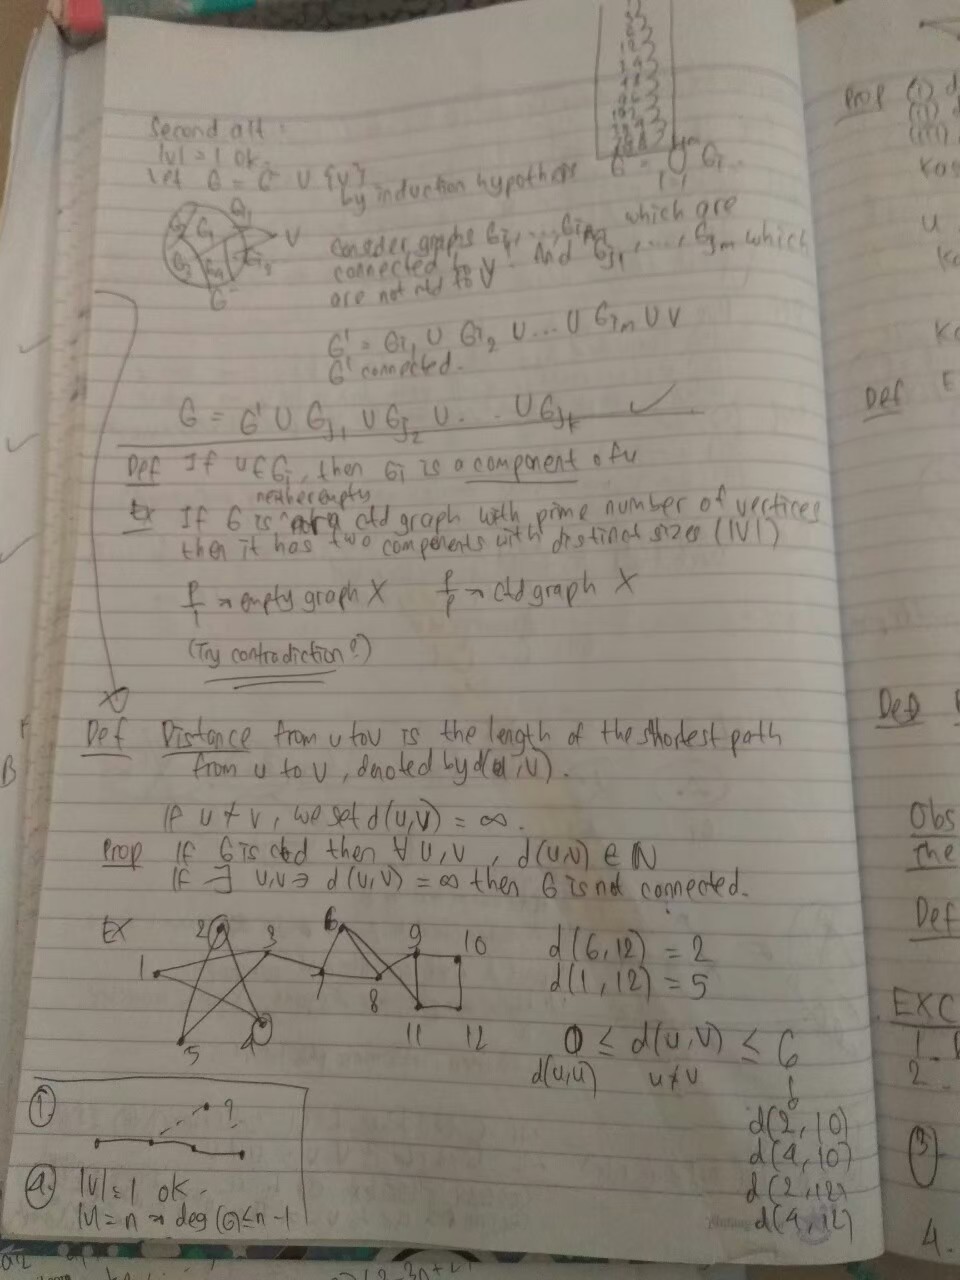 Second alt:
|V| = 1 ok.
Let G = G⁻ ∪ {v}
by induction hypothesis G⁻ = ∪ Gi
consider graphs Gi1, ..., Gin which are
connected to v. And Gj1, ..., Gjm which
are not ctd to v
V
G⁻
G' = Gi1 ∪ Gi2 ∪ ... ∪ Gin ∪ v
G' connected.
G = G' ∪ Gj1 ∪ Gj2 ∪ ... ∪ Gjk ✓
Def If v∈Gi, then Gi is a component of v
neither empty
Ex If G is nor a ctd graph with prime number of vertices
then it has two components with distinct sizes (|V|)
p/1 → empty graph X p/p → ctd graph X
(Try contradiction?)
Def Distance from u to v is the length of the shortest path
from u to v, denoted by d(u,v).
If u ≁ v, we set d(u,v) = ∞.
Prop If G is ctd then ∀ u,v, d(u,v) ∈ ℕ
If ∃ u,v ∋ d(u,v) = ∞ then G is not connected.
Ex
1 2 3 4 5 6 7 8 9 10 11 12
d(6,12) = 2
d(1,12) = 5
0 ≤ d(u,v) ≤ 6
d(u,u) u≠v
d(2,10)
d(4,10)
d(2,12)
d(4,12)
1. ?
2. |V| = 1 ok.
|V| = n → deg(G) ≤ n-1
Prop (i)
(ii)
(iii)
u
Def E
Def
Obs
The
Def
EXC
1.
2.
3
4.